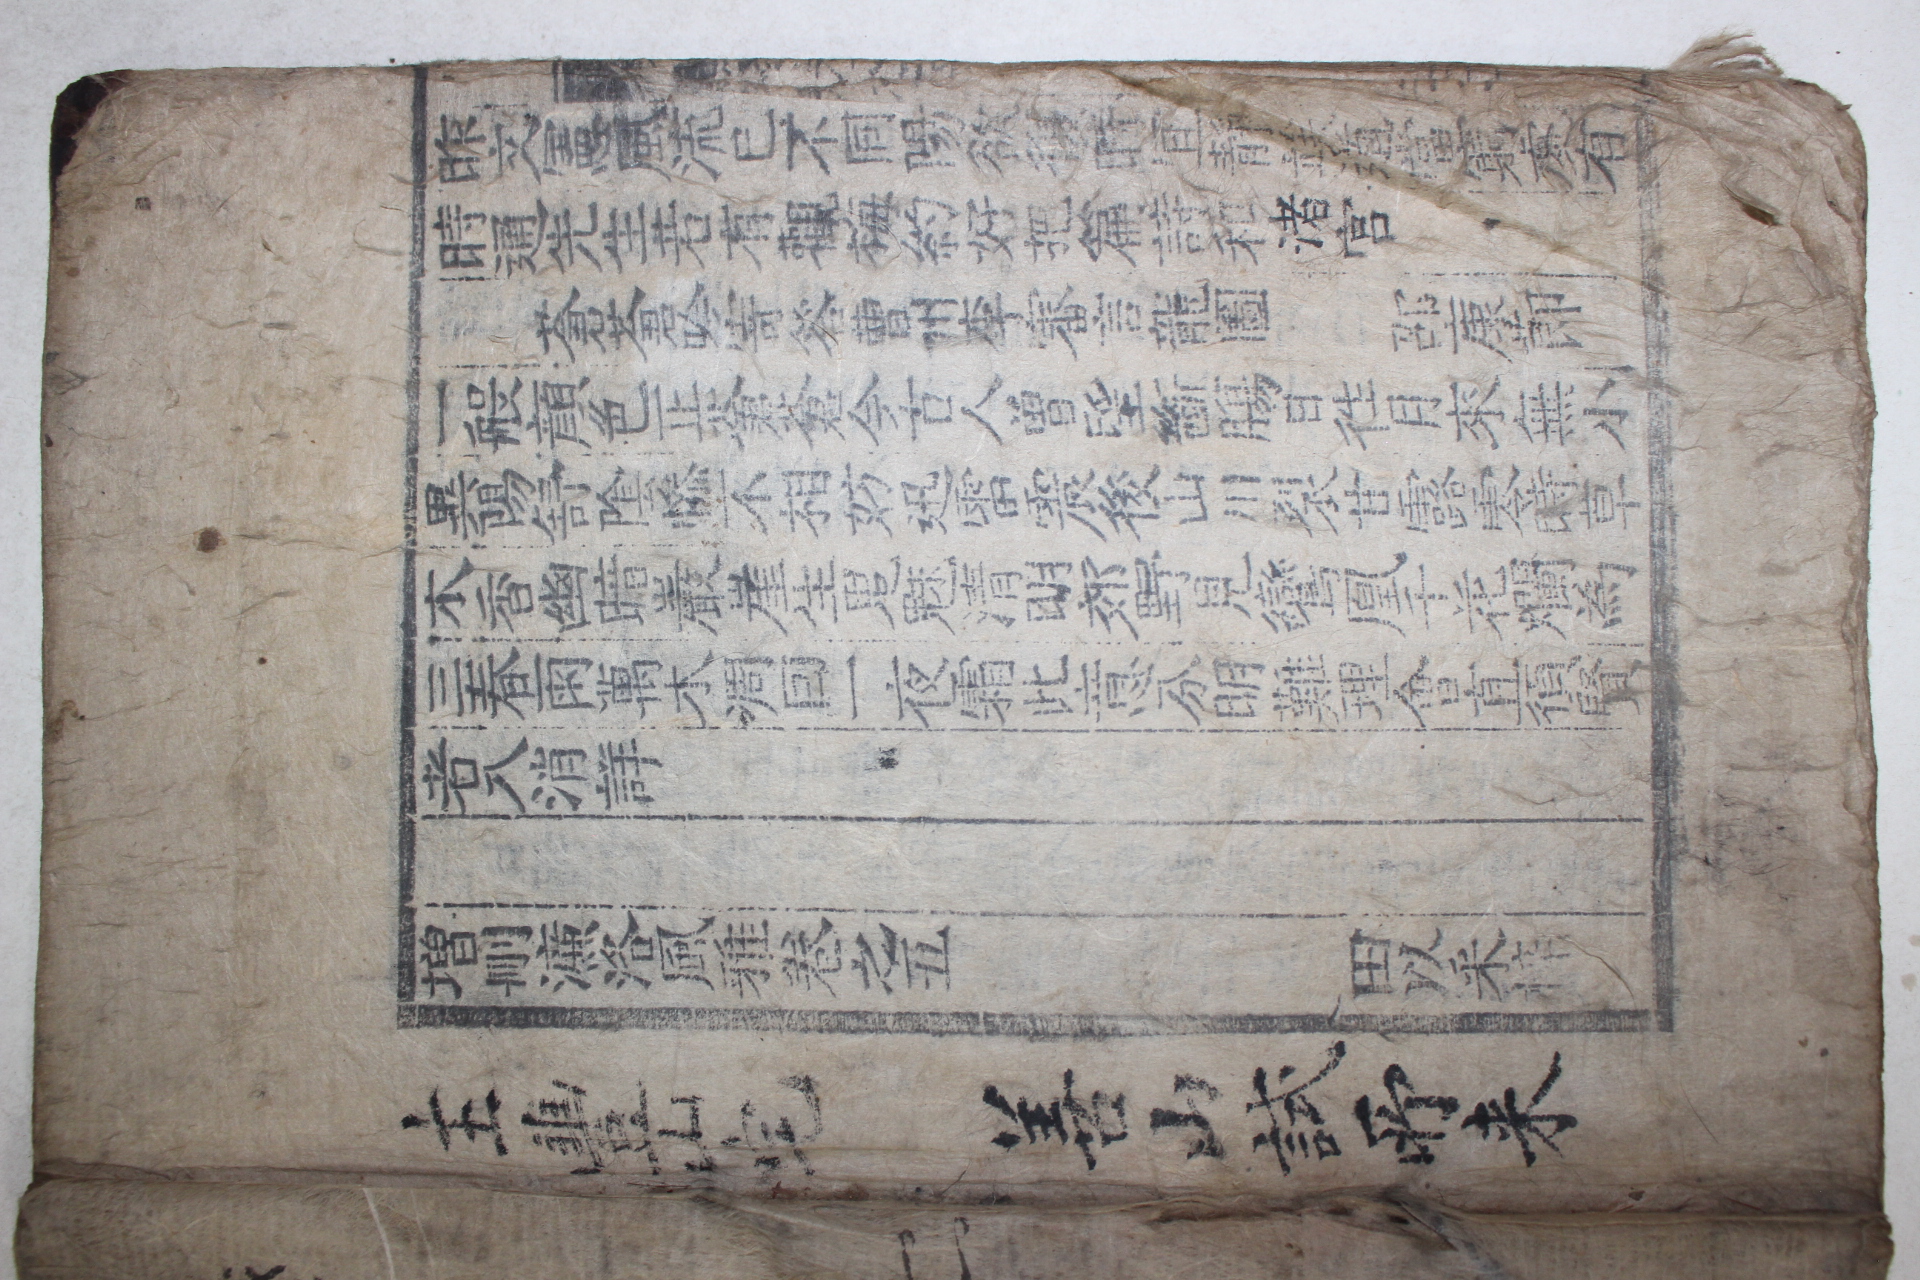 昨文憲風流已不同陽欲復時宜靜養道當窮處有
時通先生若有觀梅約好把篇詩和渚宮
蒼蒼吟寄答曹州李審言龍圖 邵康節
一般顔色正蒼蒼今古人曾望斷膓日徃月來無小
異陽舒隂慘不相妨迅雷震後山川裂甘露零時草
木香幽暗巖崖生鬼魅清明郊野見鸞凰千花爛為
三春雨萬木凋因一夜霜此意分明難理會直須賢
者入消詳
增刪濂洛風雅卷之五 田以采梓
主豊山宅 善山試所来